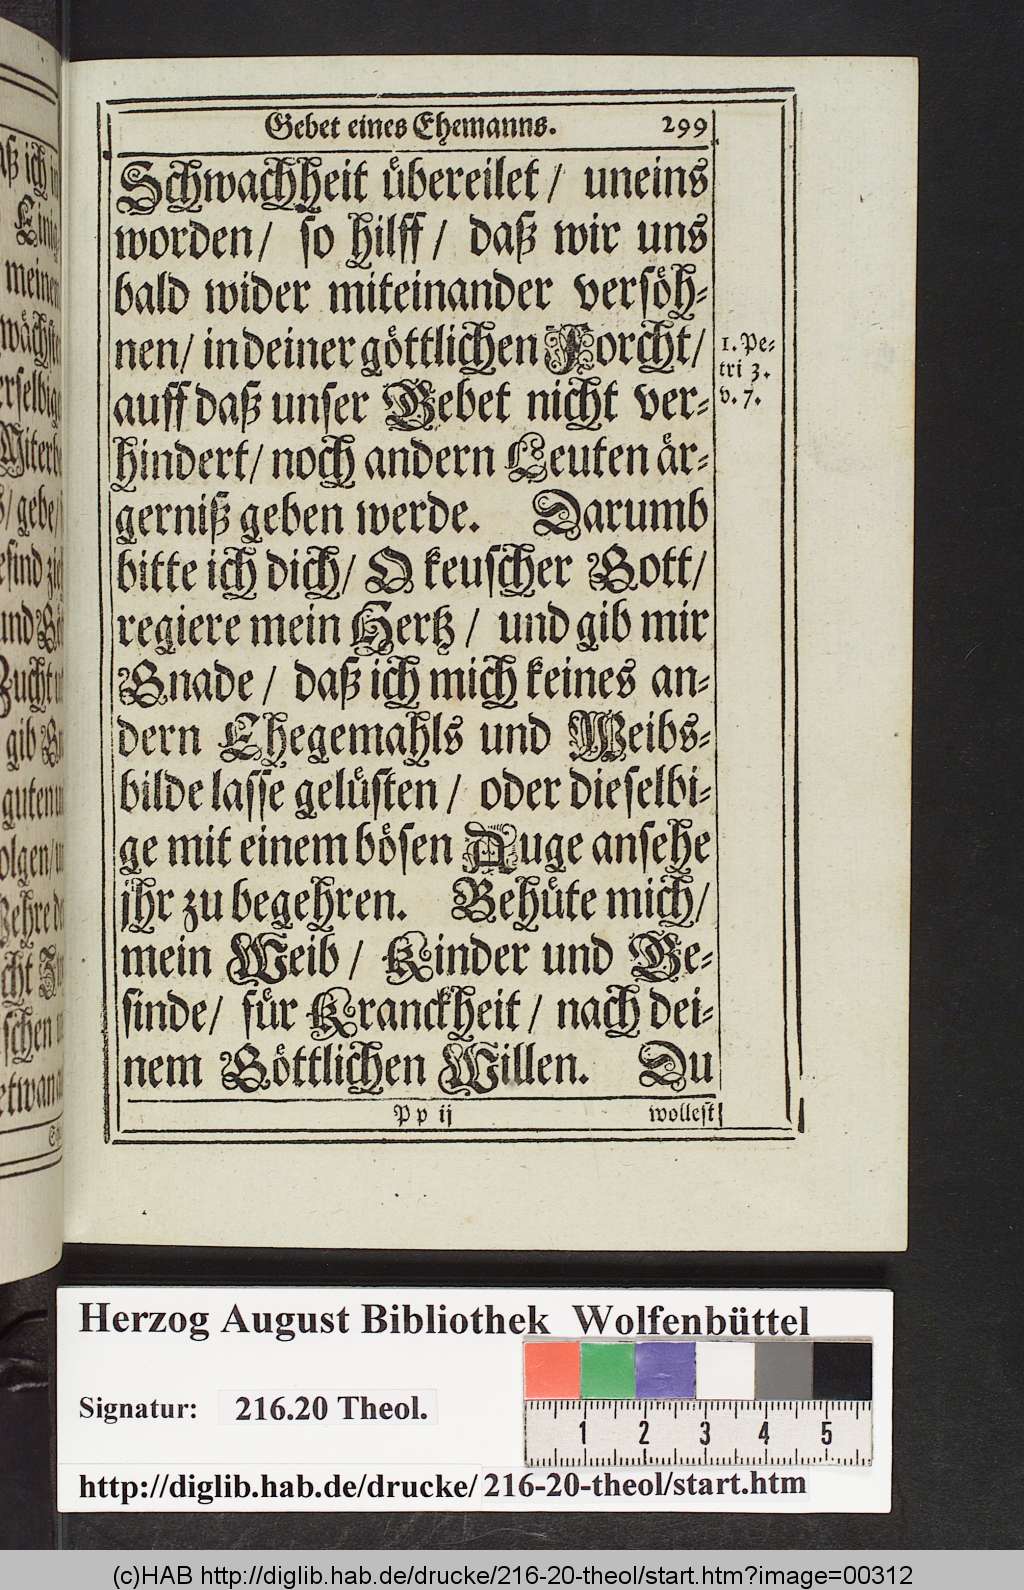 Gebet eines Ehemanns. 299
Schwachheit übereilet / uneins
worden / so hilff / daß wir uns
bald wider miteinander versöh-
nen / in deiner göttlichen Forcht /
1. Pe-
tri 3.
v. 7.
auff daß unser Gebet nicht ver-
hindert / noch andern Leuten är-
gerniß geben werde. Darumb
bitte ich dich / O keuscher Gott /
regiere mein Hertz / und gib mir
Gnade / daß ich mich keines an-
dern Ehegemahls und Weibs-
bilde lasse gelüsten / oder dieselbi-
ge mit einem bösen Auge ansehe
jhr zu begehren. Behüte mich /
mein Weib / Kinder und Ge-
sinde / für Kranckheit / nach dei-
nem Göttlichen Willen. Du
Pp ij wollest
Herzog August Bibliothek Wolfenbüttel
Signatur: 216.20 Theol.
1 2 3 4 5
http://diglib.hab.de/drucke/216-20-theol/start.htm
(c)HAB http://diglib.hab.de/drucke/216-20-theol/start.htm?image=00312